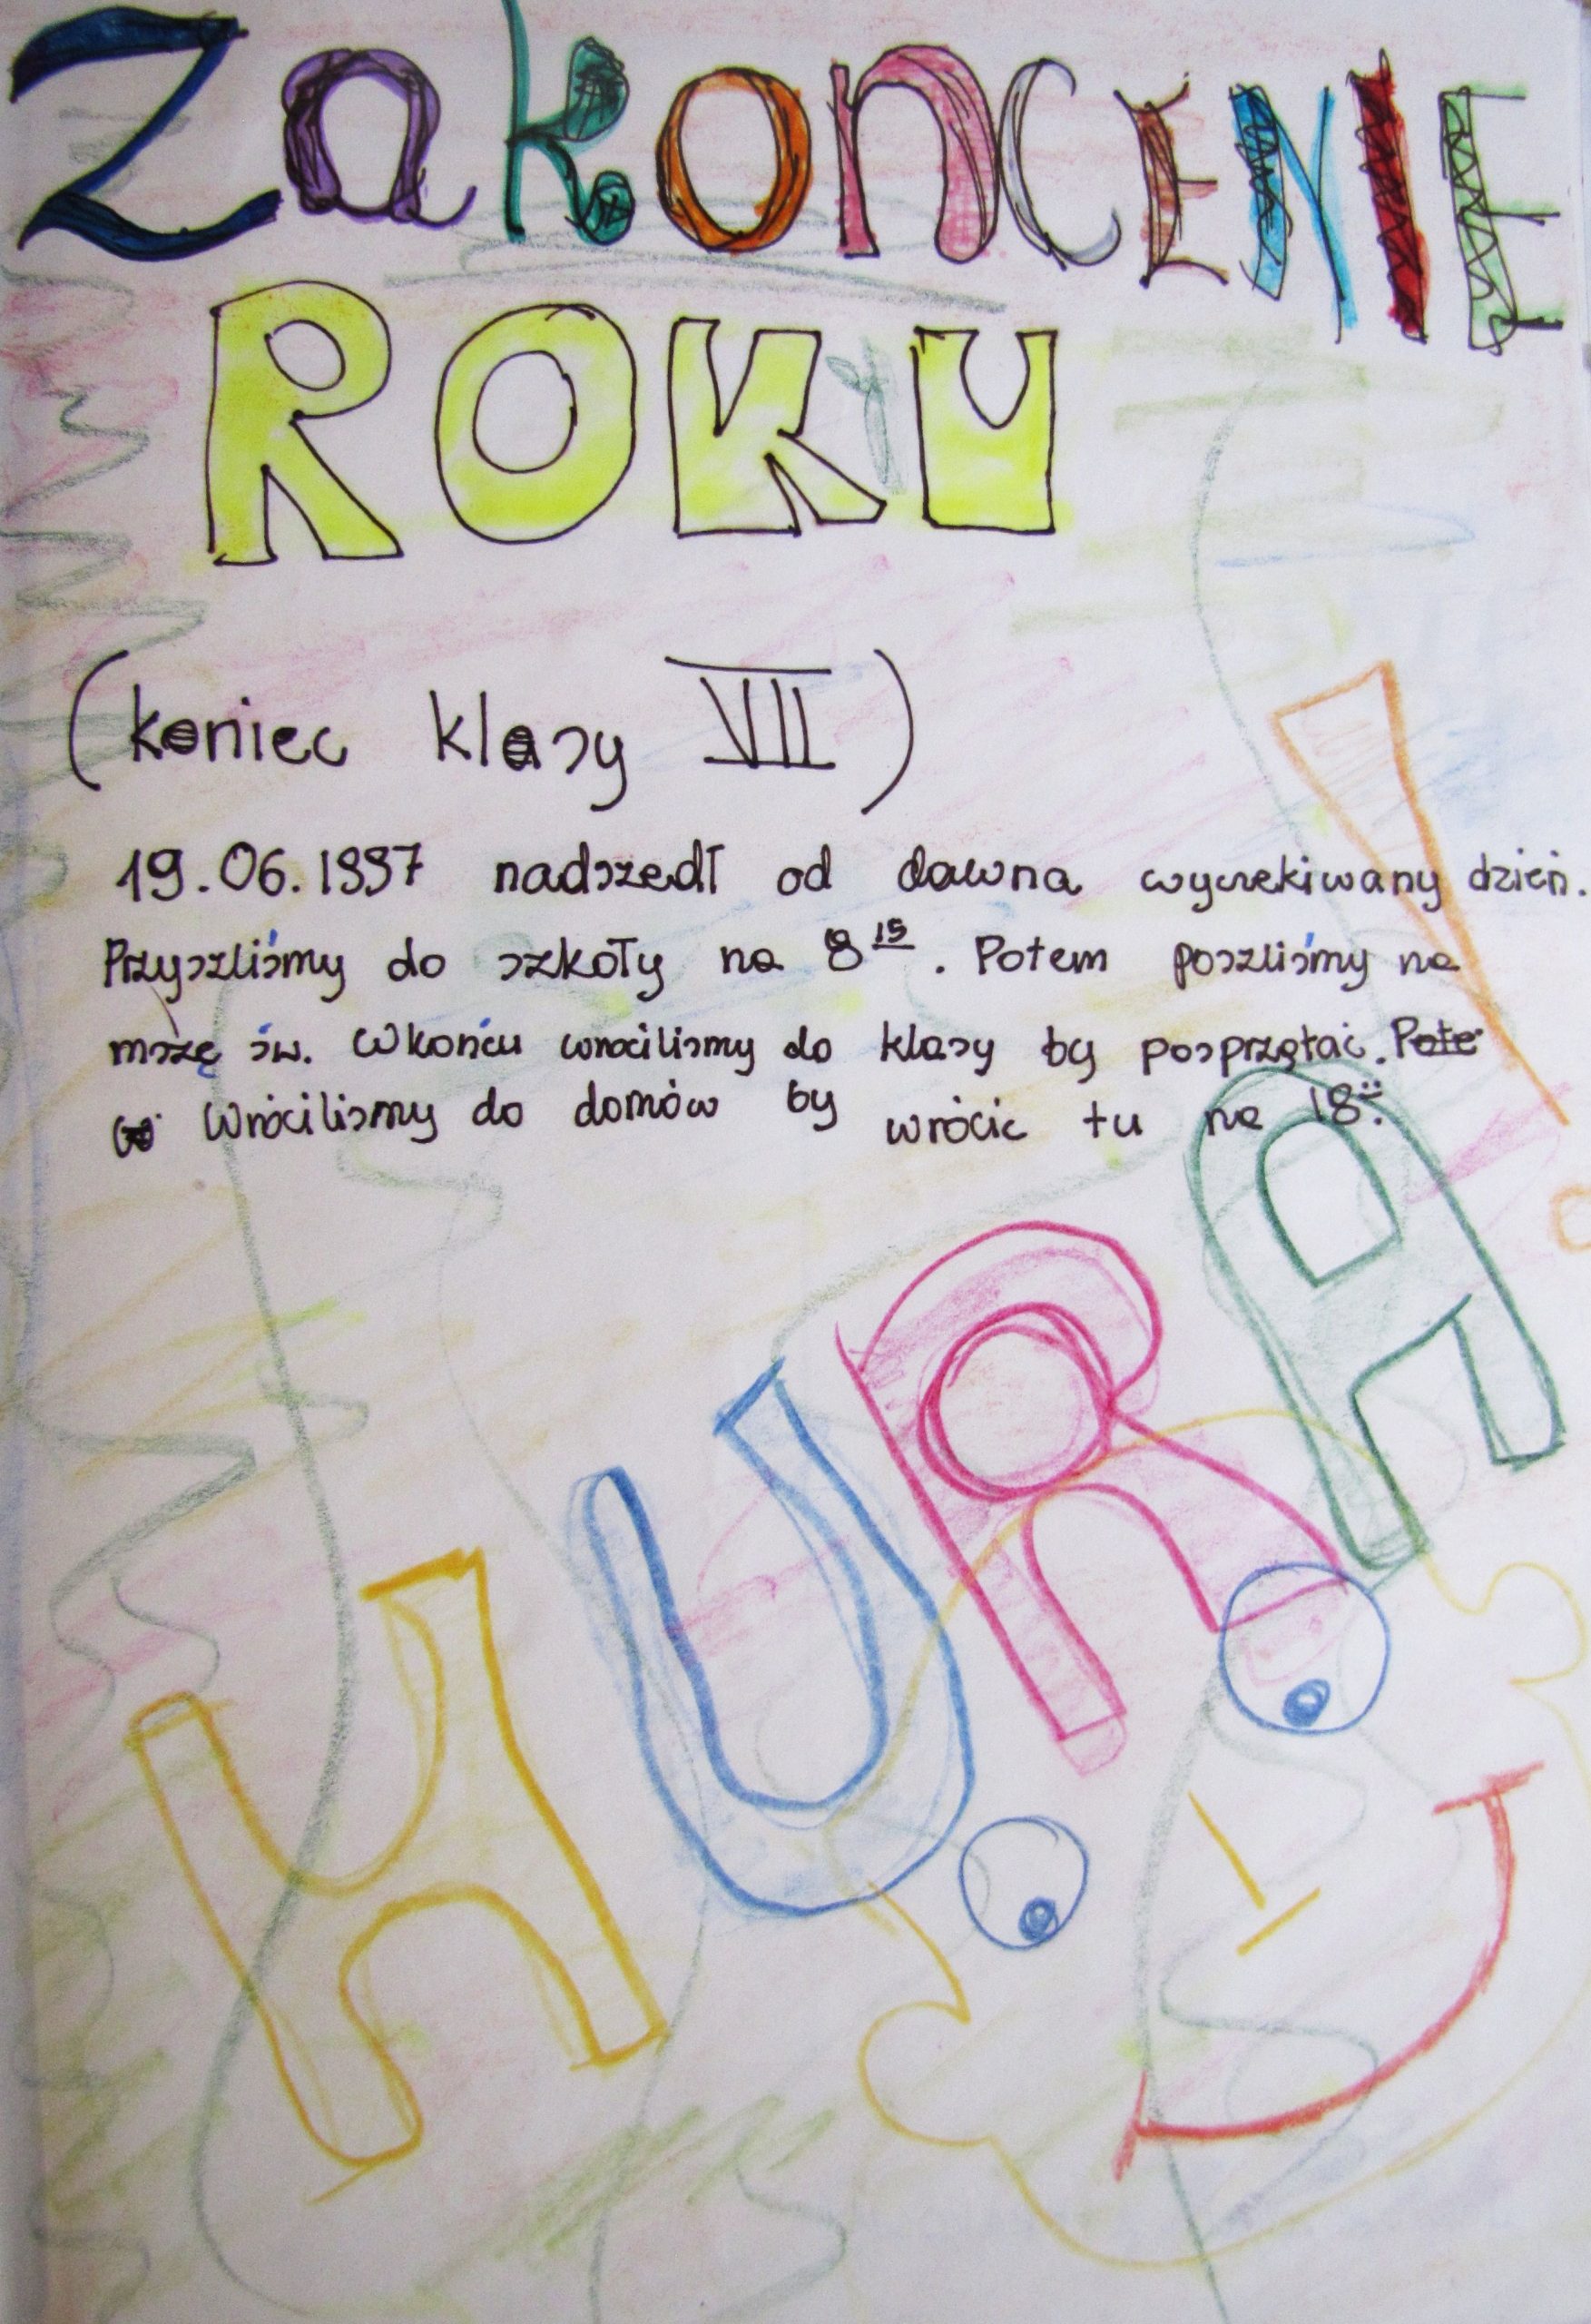 ZakonCENIE
ROKU
(koniec klasy VII)
19.06.1997 nadszedł od dawna wyczekiwany dzień.
Przyszliśmy do szkoły na 8 15. Potem poszliśmy na
mszę św. Wkońcu wrócilismy do klasy by posprzątać. Pote
Wrócilismy do domów by wrócic tu na 18
HURA!